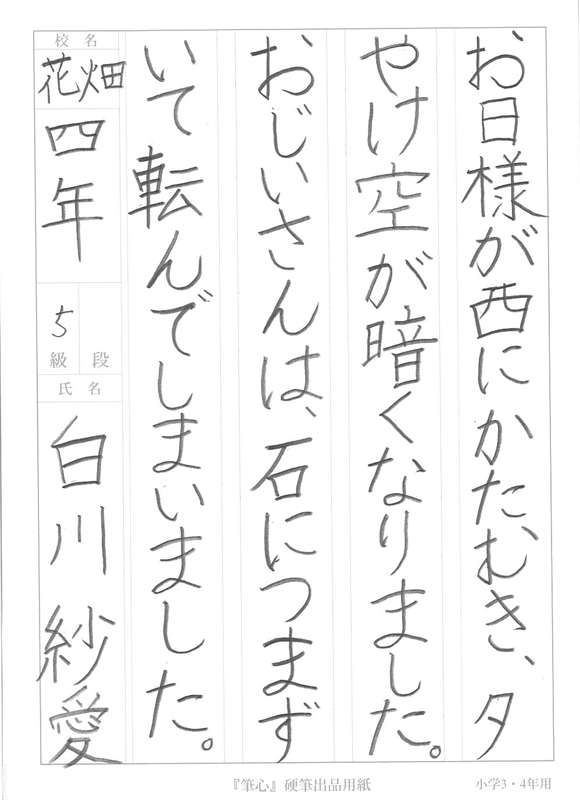 お日様が西にかたむき、夕
やけ空が暗くなりました。
おじいさんは、石につまず
いて転んでしまいました。
校名
花畑
四年
5
級 段
氏名
白川 紗愛
『筆心』硬筆出品用紙
小学3・4年用